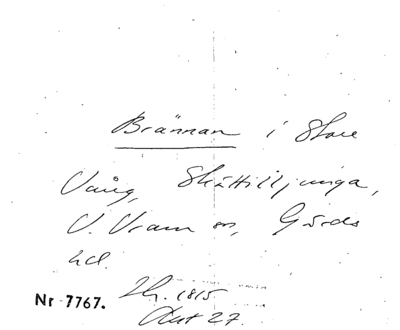 Brännan i Stora
Vång, Skättilljunga,
V. Vram sn, Gärds
hd.
Nr 7767. Lh. 1815
Akt 27